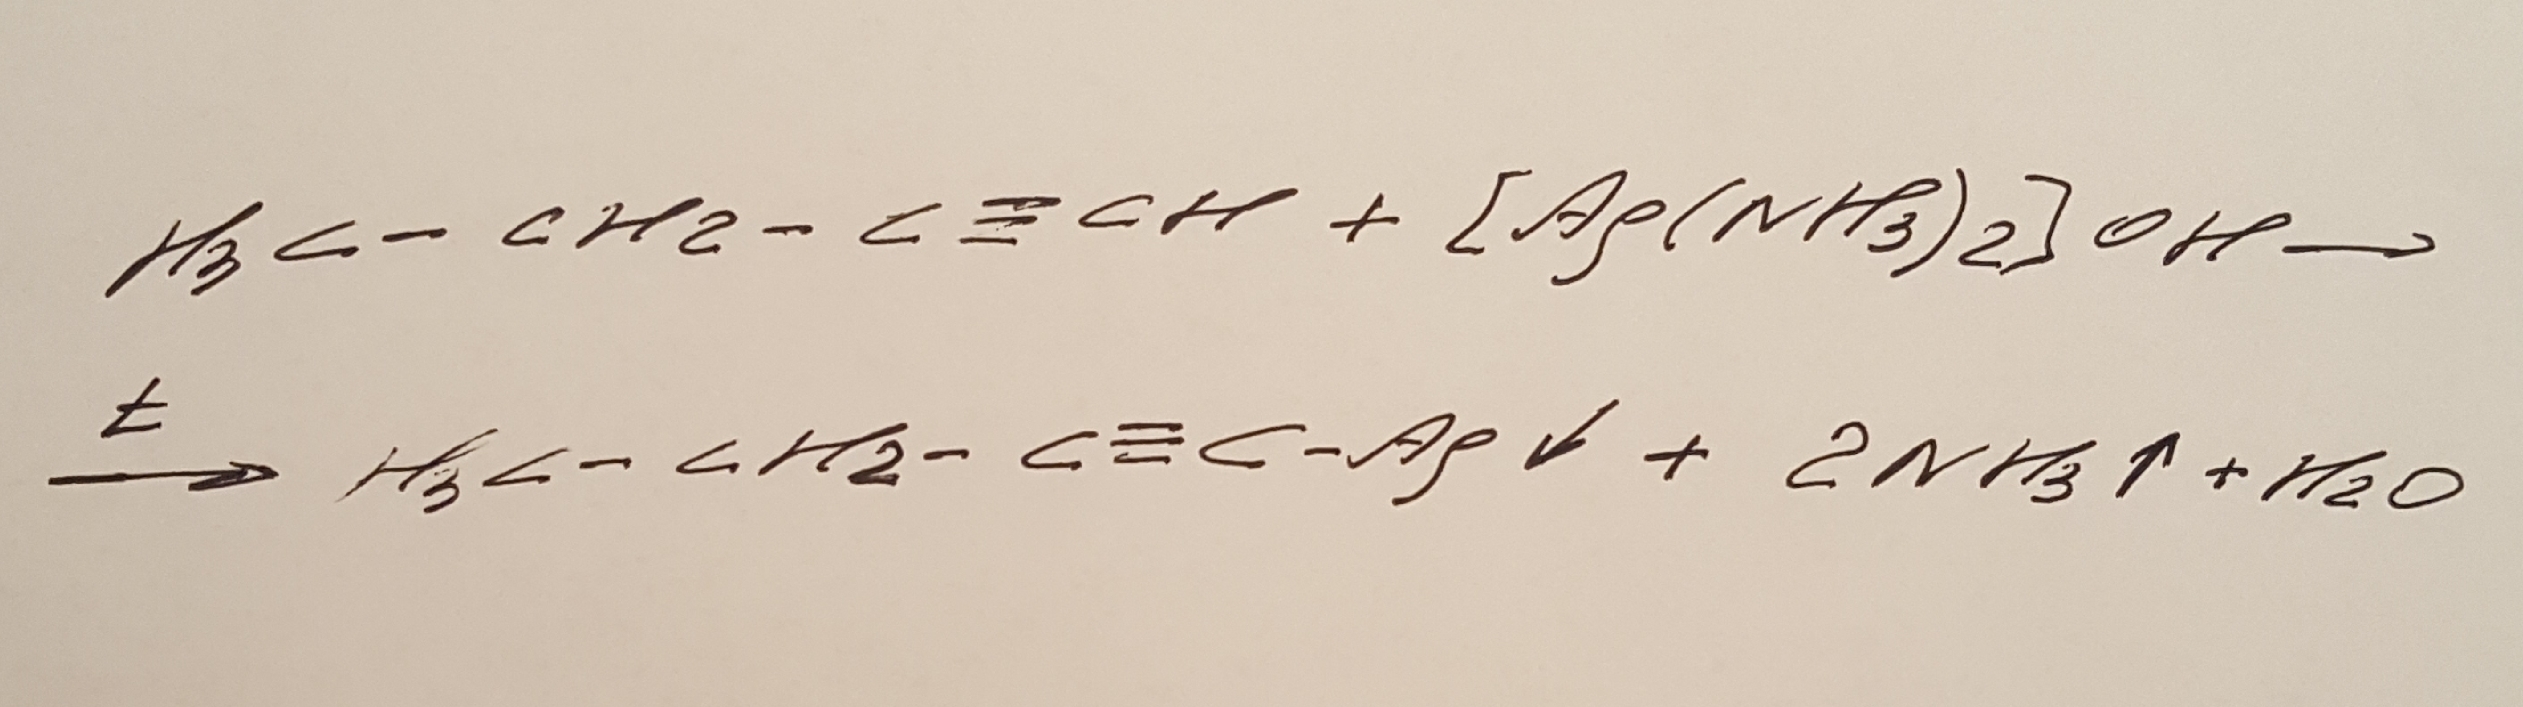 H3C-CH2-C≡CH + [Ag(NH3)2]OH→
t→ H3C-CH2-C≡C-Ag↓ + 2NH3↑ + H2O